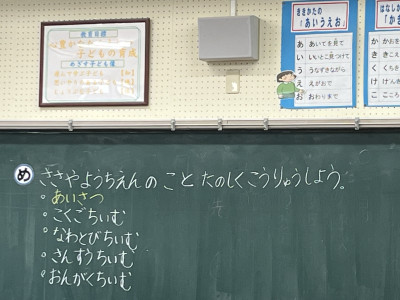 教育目標
心豊かな
子どもの育成
めざす子ども像
ききかたの
「あいうえお」
あ あいてを見て
い いいとこ見つけて
う うなずきながら
え えがおで
お おわりまで
はなしか
「か
か かおを
き
く くちを
け けん
こ こころ
め ささやようちえんのこと たのしくこうりゅうしよう。
・あいさつ
・こくごちいむ
・なわとびちいむ
・さんすうちいむ
・おんがくちいむ